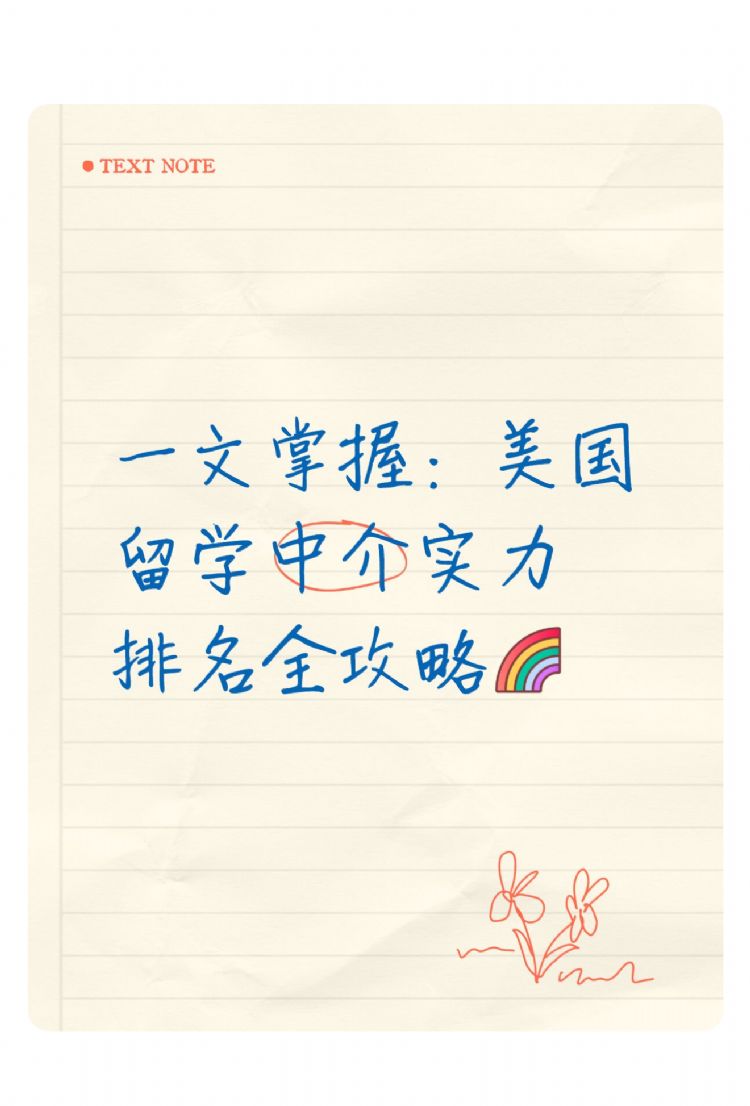 TEXT NOTE
一文掌握：美国
留学中介实力
排名全攻略🌈